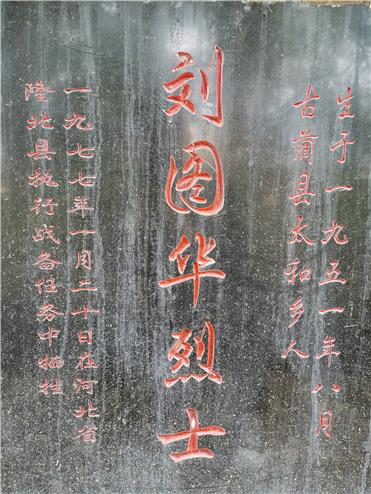 生于一九五一年八月
古蔺县太和乡人
刘图华烈士
一九七七年一月二十日在河北省
隆化县执行战备任务中牺牲